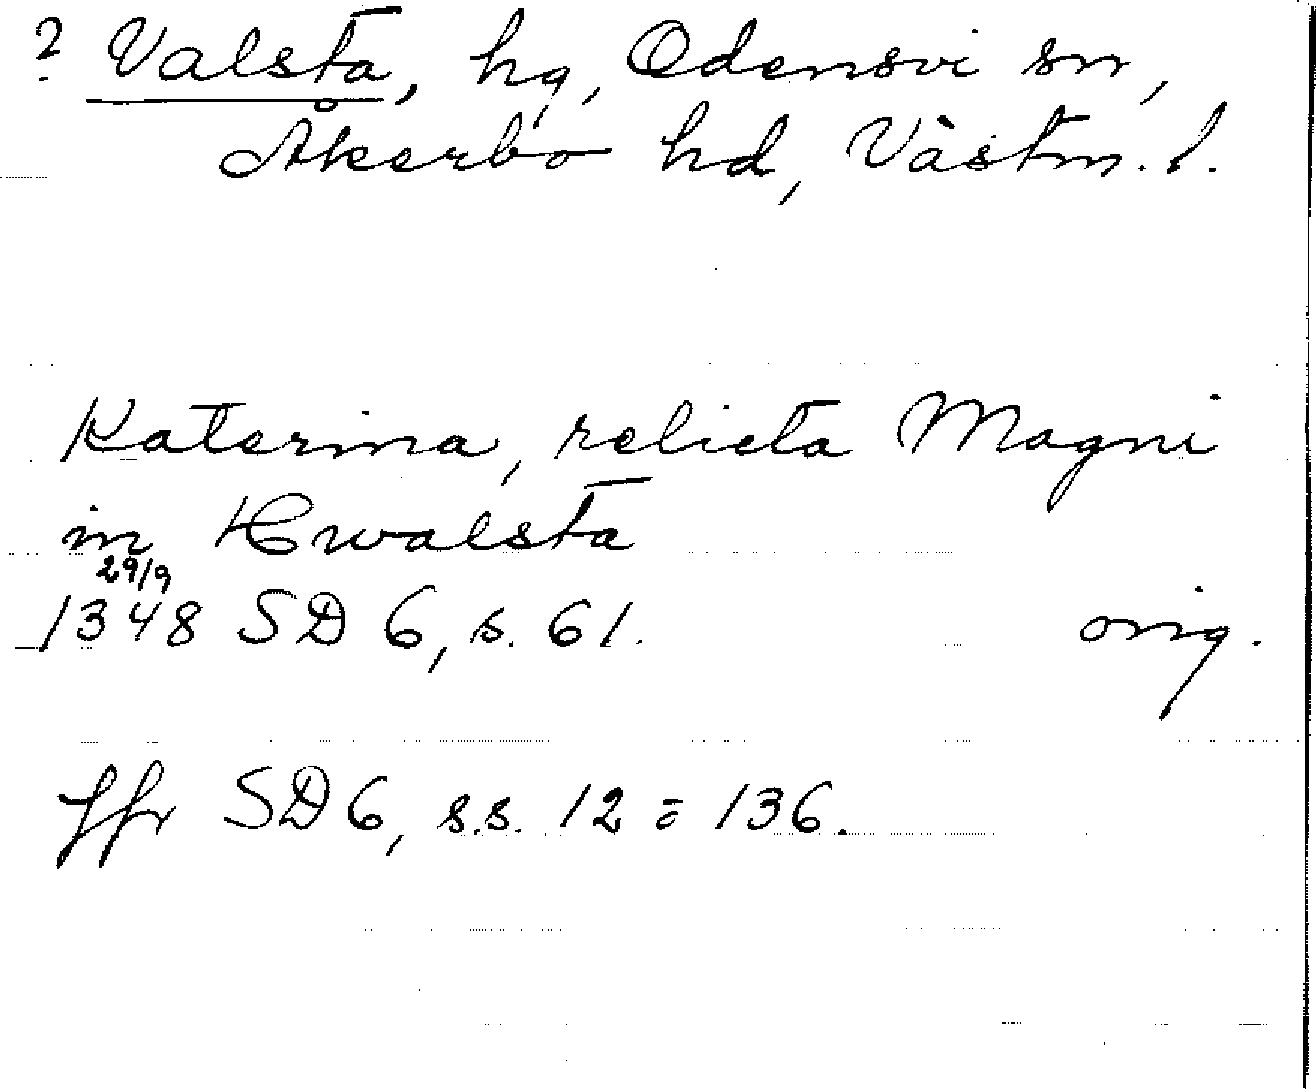 ? Valsta, hg, Odensvi sn,
Åkerbo hd, Västm. l.
Katerina, relicta Magni
in Hwalsta
29/9
1348 SD 6, s. 61. orig.
Jfr SD 6, s.s. 12 = 136.